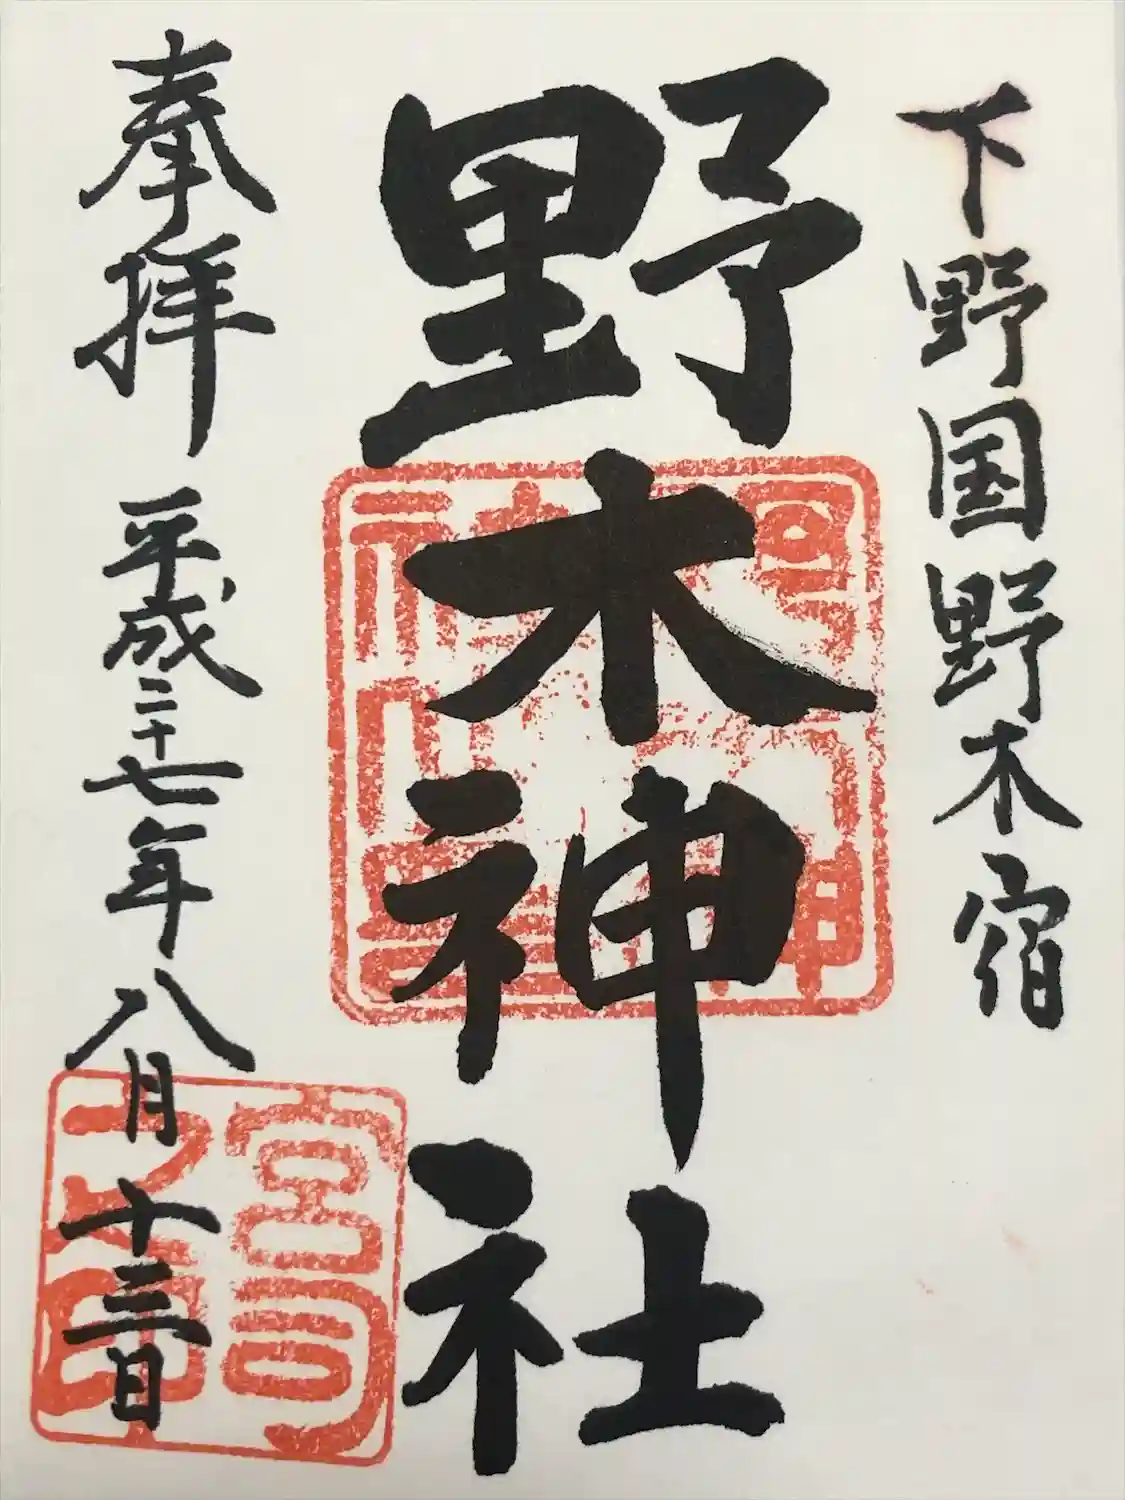 下野国野木宿
野木神社
奉拝 平成二十七年八月十三日
宮司之印